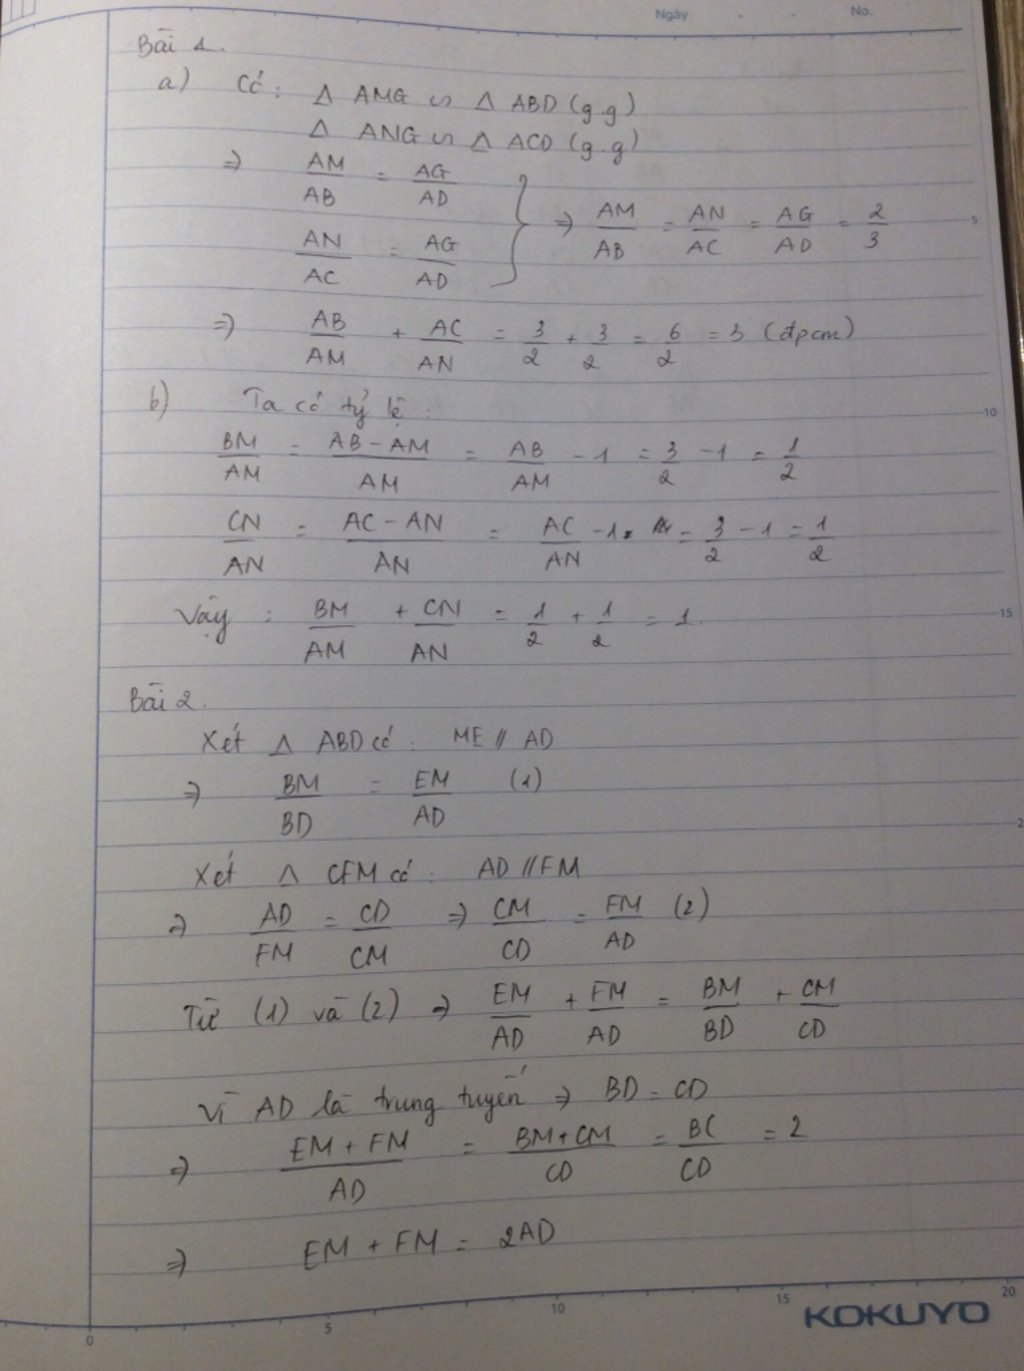 Ngày . . No.
Bài 1.
a) Có: Δ AMG ∽ Δ ABD (g.g)
Δ ANG ∽ Δ ACD (g.g)
=> AM/AB = AG/AD
AN/AC = AG/AD } => AM/AB = AN/AC = AG/AD = 2/3
=> AB/AM + AC/AN = 3/2 + 3/2 = 6/2 = 3 (đpcm)
b) Ta có tỷ lệ:
BM/AM = AB-AM/AM = AB/AM - 1 = 3/2 - 1 = 1/2
CN/AN = AC-AN/AN = AC/AN - 1 = 3/2 - 1 = 1/2
Vậy: BM/AM + CN/AN = 1/2 + 1/2 = 1.
Bài 2.
Xét Δ ABD có: ME // AD
=> BM/BD = EM/AD (1)
Xét Δ CFM có: AD // FM
=> AD/FM = CD/CM => CM/CD = FM/AD (2)
Từ (1) và (2) => EM/AD + FM/AD = BM/BD + CM/CD
Vì AD là trung tuyến => BD = CD
=> EM + FM/AD = BM+CM/CD = BC/CD = 2
=> EM + FM = 2AD
5
10
15
2
0 5 10 15 20
KOKUYO